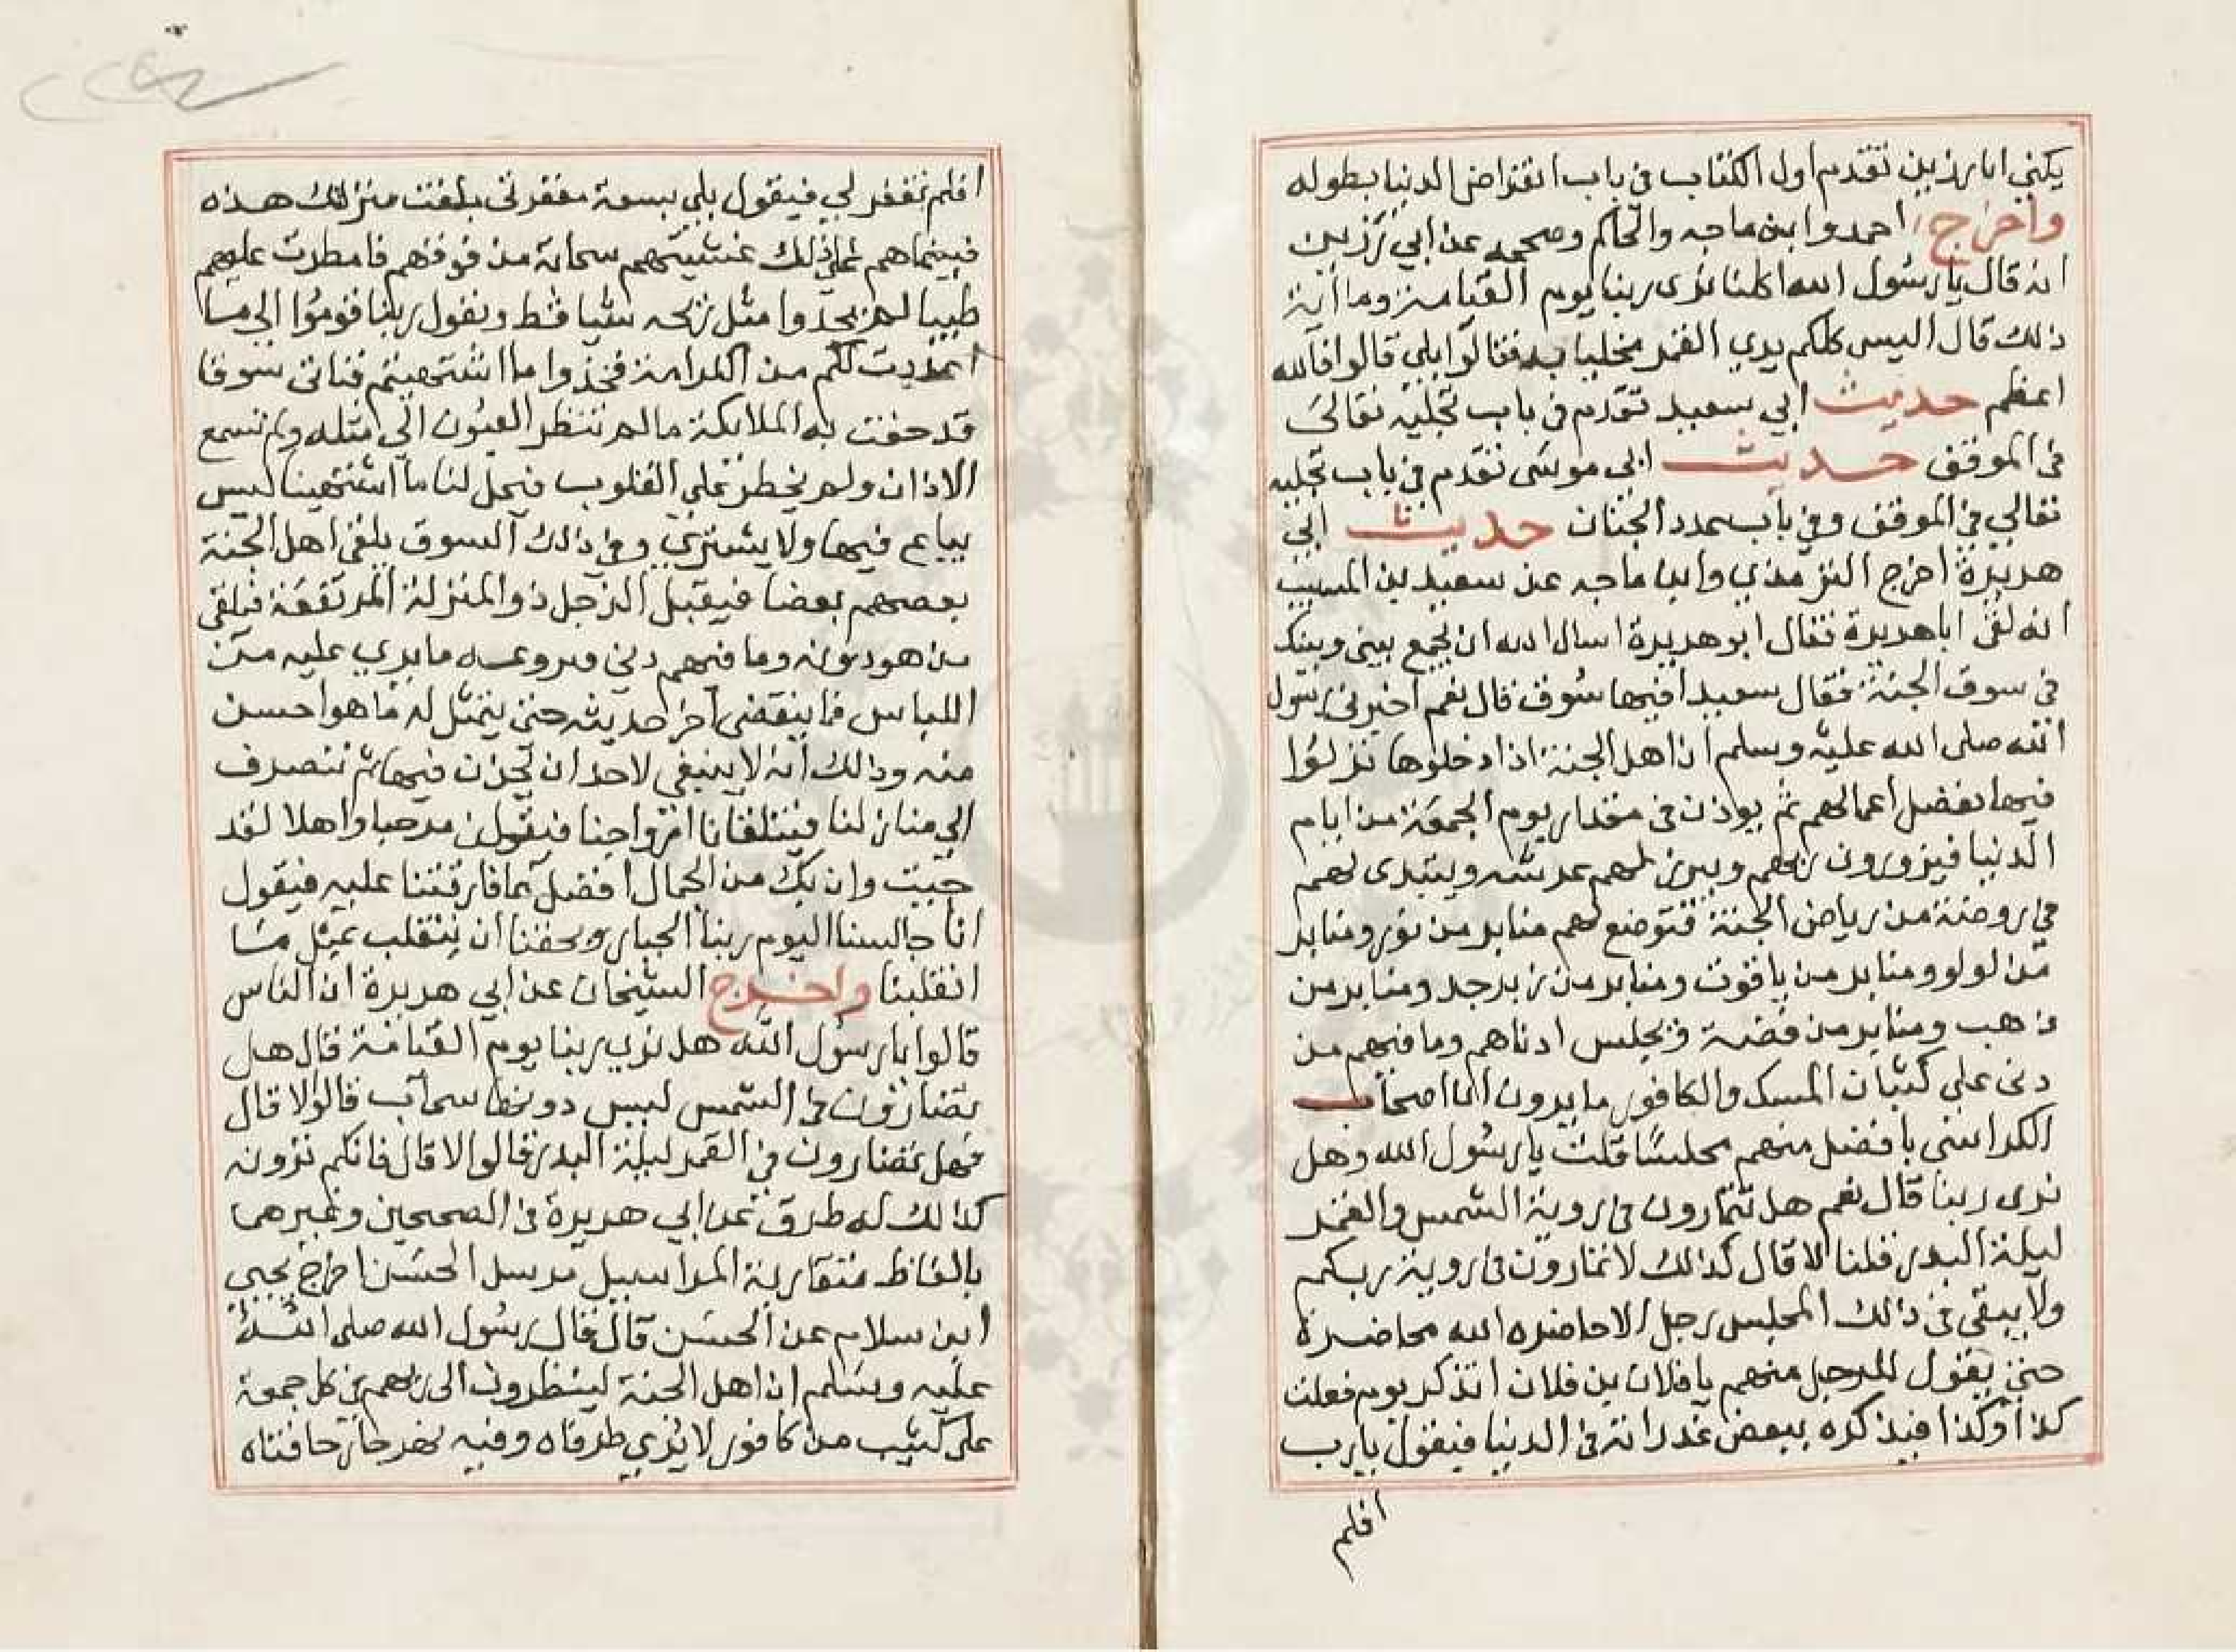 يكني ابا رزين تقدم اول الكتاب في باب انقراض الدنيا بطوله
واخرج احمد وابن ماجه والحاكم وصححه عن ابي رزين
انه قال يا رسول الله اكلنا نرى ربنا يوم القيامة وما اية
ذلك قال اليس كلكم يري القمر مخليا به فقالوا بلي قالوا فالله
اعظم حديث ابي سعيد تقدم في باب تجليه تعالى
في الموقف حديث ابي موسى تقدم في باب تجليه
تعالي في الموقف وفي باب عدد الجنان حديث ابي
هريرة اخرج الترمذي وابن ماجه عن سعيد بن المسيب
انه لقى ابا هريرة فقال ابو هريرة اسال الله ان يجمع بيني وبينك
في سوق الجنة فقال سعيد افيها سوق قال نعم اخبرني رسول
الله صلى الله عليه وسلم ان اهل الجنة اذا دخلوها نزلوا
فيها بفضل اعمالهم ثم يوذن في مقدار يوم الجمعة من ايام
الدنيا فيزورون ربهم ويبرز لهم عرشه ويتبدى لهم
في روضة من رياض الجنة فتوضع لهم منابر من نور ومنابر
من لولو ومنابر من ياقوت ومنابر من زبرجد ومنابر من
ذهب ومنابر من فضة ويجلس ادناهم وما فيهم من
دني علي كثبان المسك والكافور ما يرون ان اصحاب
الكراسي بافضل منهم مجلسا قلت يا رسول الله وهل
نرى ربنا قال نعم هل تتمارون في روية الشمس والقمر
ليلة البدر قلنا لا قال كذالك لا تمارون في روية ربكم
ولا يبقي في ذالك المجلس رجل الا حاضره الله محاضرة
حتي يقول للرجل منهم يا فلان بن فلان اتذكر يوم فعلت
كذا وكذا فيذكره ببعض غدراته في الدنيا فيقول يا رب
افلم
افلم تغفر لي فيقول بلي بسعة مغفرتي بلغت منزلتك هذه
فبينماهم علي ذلك غشيتهم سحابة من فوقهم فامطرت عليهم
طيبا لم يجدوا مثل ريحه شيا قط ويقول ربنا قوموا الي ما
اعديت لكم من الكرامة فخذوا ما اشتهيتم فناتي سوقا
قد حفت به الملائكة ما لم تنظر العيون الي مثله ولم تسمع
الاذان ولم يخطر علي القلوب فيحمل لنا ما اشتهينا ليس
يباع فيها ولا يشتري وفي ذالك السوق يلقي اهل الجنة
بعضهم بعضا فيقبل الرجل ذو المنزلة المرتفعة فيلقي
من هو دونه وما فيهم دني فيروعه ما يري عليه من
اللباس فما ينقضي اخر حديثه حتي يتمثل له ما هو احسن
منه وذالك انه لا ينبغي لاحد ان يحزن فيها ثم ننصرف
الي منازلنا فيتلقانا ازواجنا فيقولن مرحبا واهلا لقد
جيت وان بك من الجمال افضل مما فارقتنا عليه فيقول
انا جالسنا اليوم ربنا الجبار ويحقنا ان ننقلب بمثل ما
انقلبنا واخرج الشيخان عن ابي هريرة ان الناس
قالوا يا رسول الله هل نري ربنا يوم القيامة قال هل
تضارون في الشمس ليس دونها سحاب قالوا لا قال
فهل تضارون في القمر ليلة البدر قالوا لا قال فانكم ترونه
كذالك له طرق عن ابي هريرة في الصحيحين وغيرهما
بالفاظ متقاربة المراسيل مرسل الحسن اخرج يحيي
ابن سلام عن الحسن قال قال رسول الله صلى الله
عليه وسلم ان اهل الجنة لينظرون الى ربهم في كل جمعة
على كثيب من كافور لا يري طرفاه وفيه نهر جار حافتاه